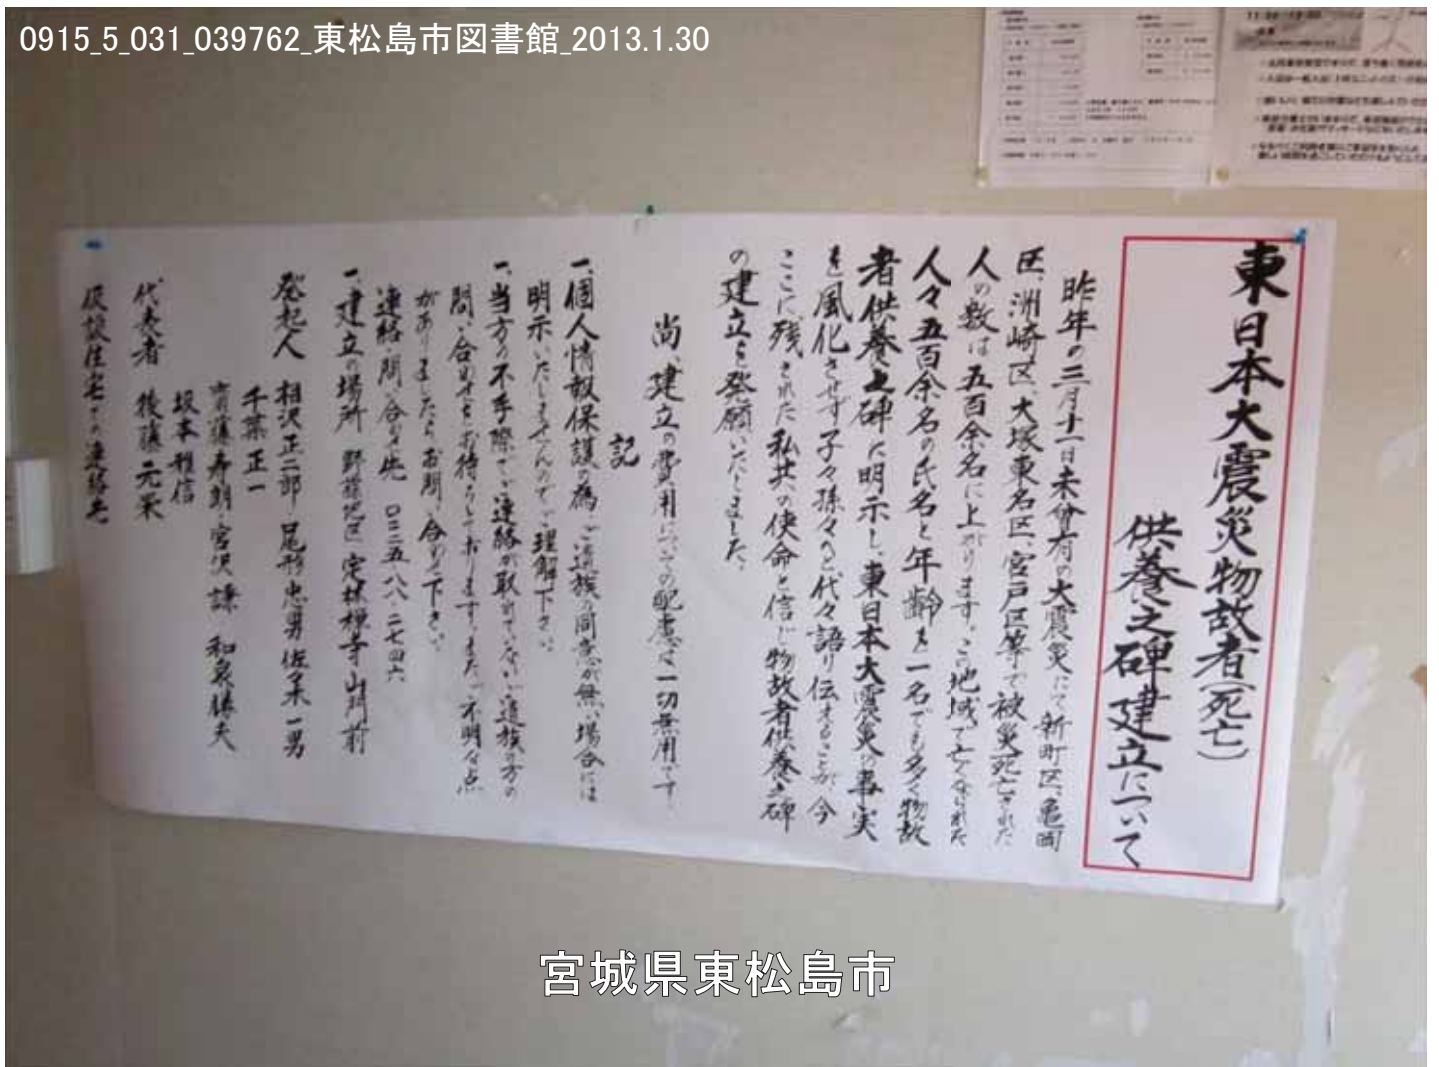 0915_5_031_039762_東松島市図書館_2013.1.30
東日本大震災物故者(死亡)
供養之碑建立について
昨年の三月十一日未曾有の大震災にて新町区、亀岡
区、洲崎区、大塚東名区、宮戸区等で被災死亡された
人の数は五百余名に上がります。この地域で亡くなられた
人々五百余名の氏名と年齢を一名でも多く物故
者供養之碑に明示し、東日本大震災の事実
を風化させず子々孫々へと代々語り伝えることが、今
ここに残された私共の使命と信じ物故者供養之碑
の建立を発願いたしました。
尚、建立の費用についての配慮は一切無用です。
記
一、個人情報保護の為、ご遺族の同意が無い場合には
明示いたしませんのでご理解下さい。
一、当方の不手際でご連絡が取れていないご遺族の方の
問い合わせをお待ちしております。また、ご不明な点
がありましたらお問い合わせ下さい。
連絡・問い合わせ先 〇二二五-八八-二七四六
一、建立の場所 野蒜地区 定林禅寺山門前
発起人 相沢正二郎 尾形忠男 佐々木一男
千葉正一
斎藤寿朗 宮沢謙 和泉勝夫
坂本雅信
代表者 後藤元栄
仮設住宅での連絡先
宮城県東松島市